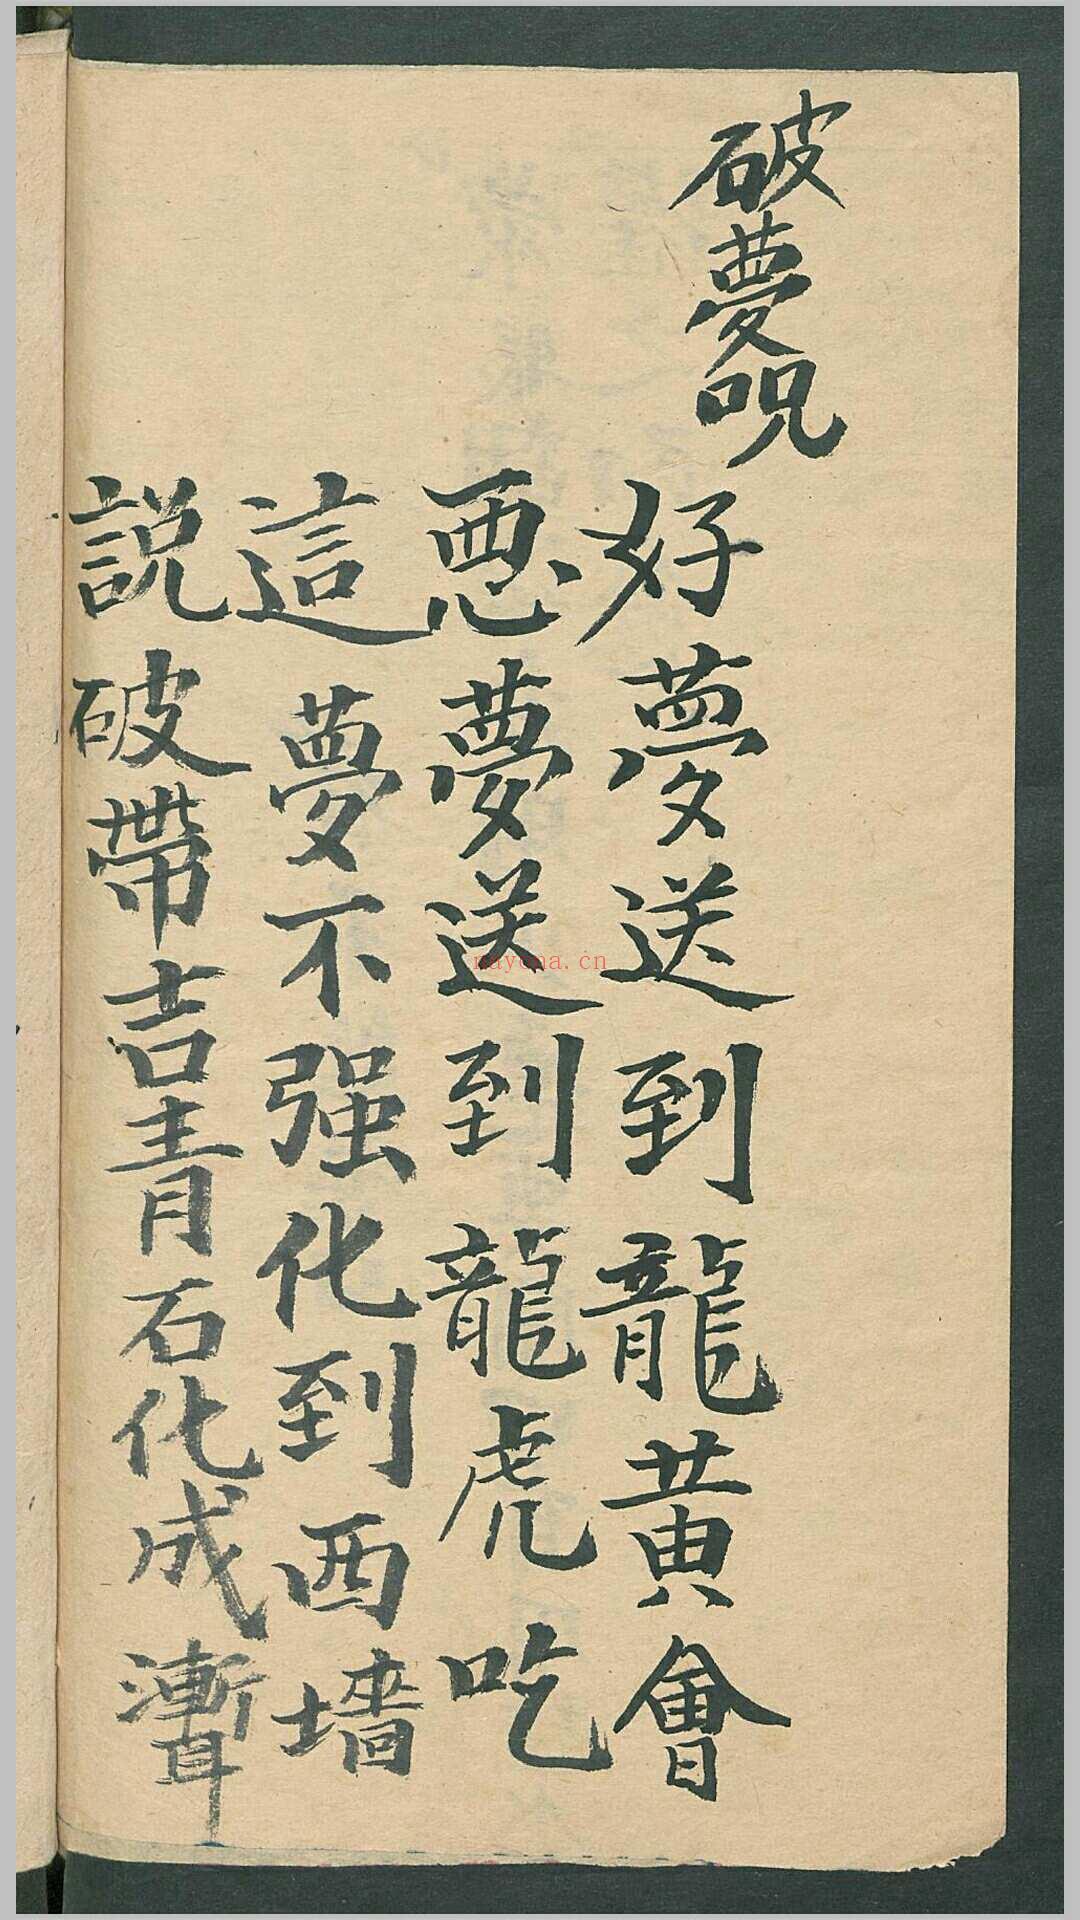 破夢呪
好夢送到龍黄會
惡夢送到龍虎吃
這夢不强化到西墙
説破帶吉青石化成
nayona.cn